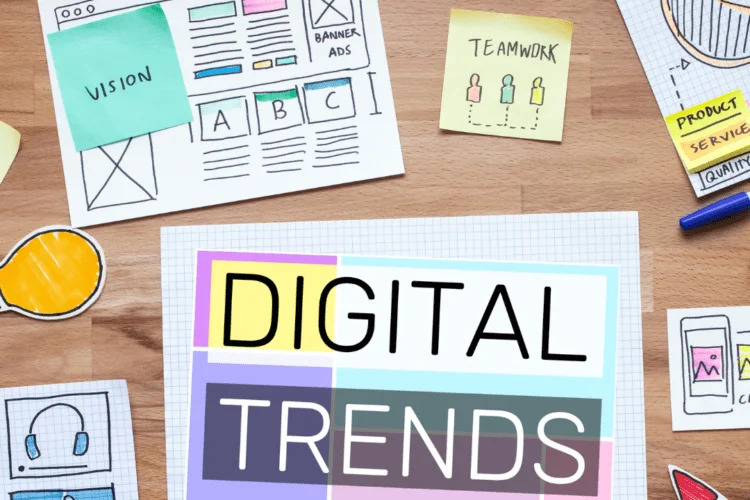 VISION
BANNER
ADS
A
B
C
TEAMWORK
PRODUCT
SERVICE
QUALITY
DIGITAL
TRENDS